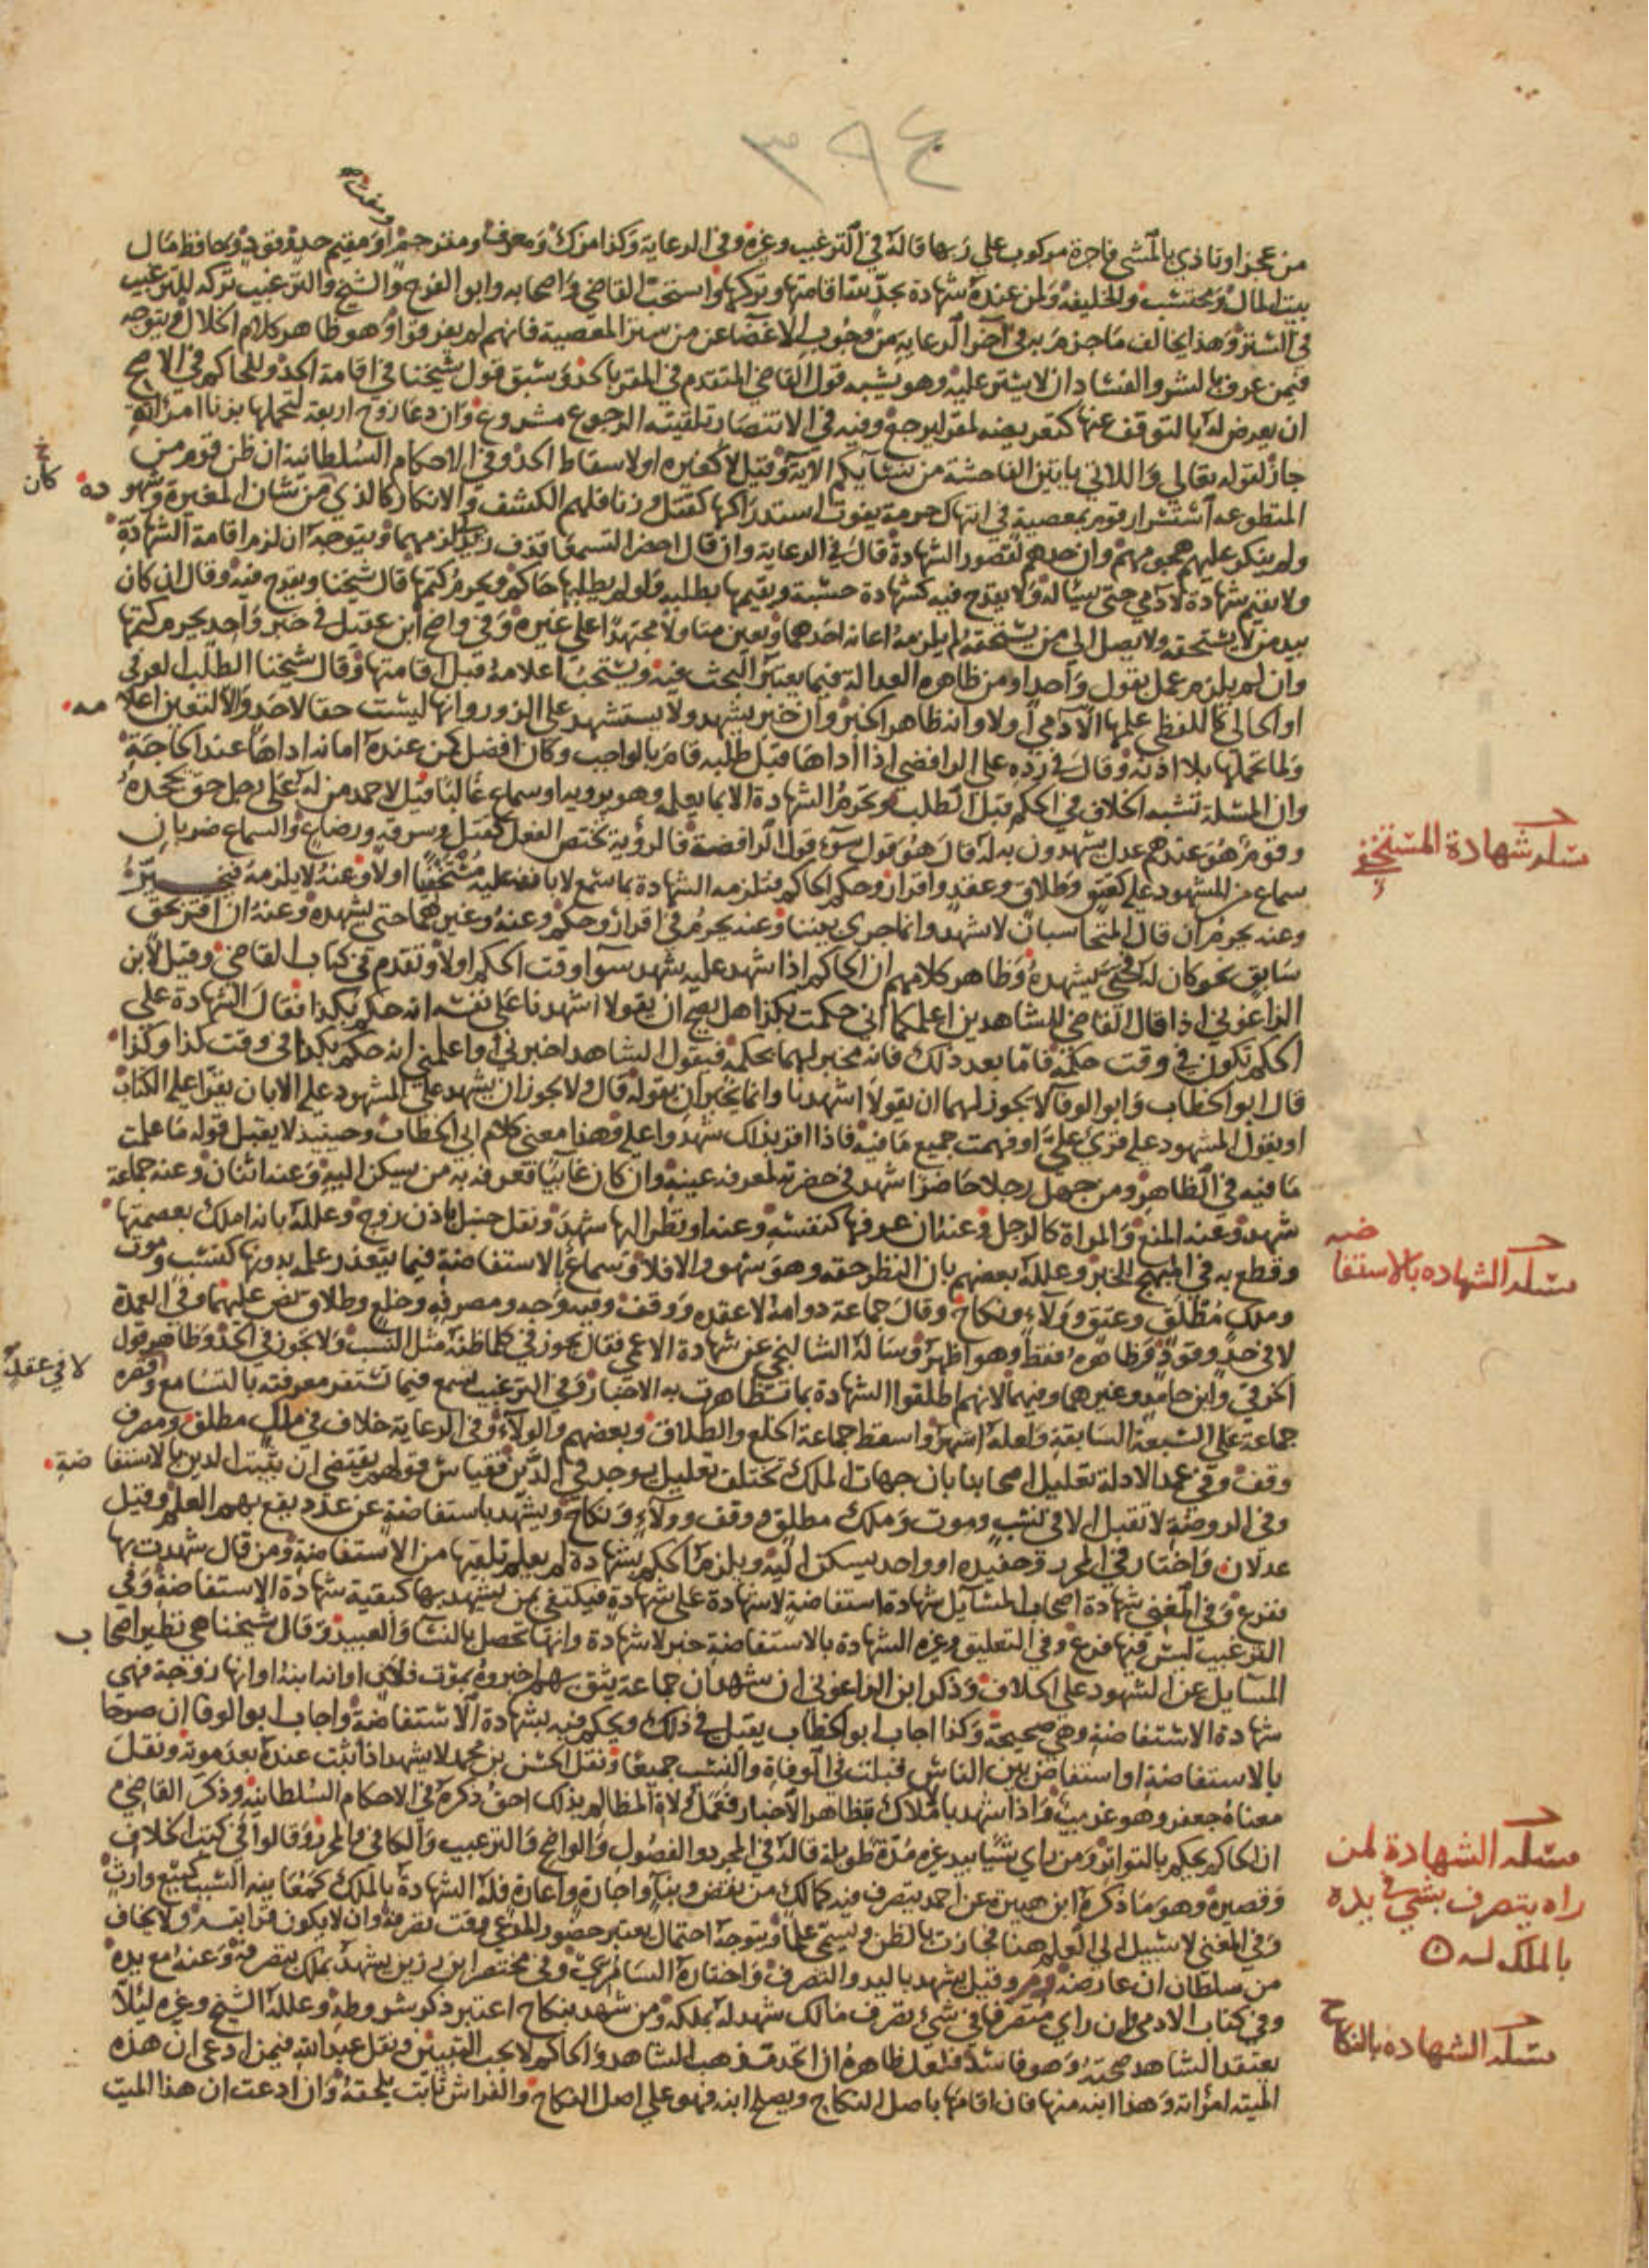 ٣٩٤
من عجز او تاذي بالمشي فاجرة مركوب علي ربها قاله في الترغيب وغيره وفي الرعاية وكذا مزك ومعرف ومترجم او مقيم حد وقود وحافظ مال
ومفت
بيت المال ومحتسب والخليفة ولمن عنده شهادة بحد لله اقامتها وتركها واستحب القاضي واصحابه وابو الفرج والشيخ والترغيب تركه للترغيب
في الستر وهذا يخالف ما جزم به في آخر الرعاية من وجوب الاغضا عن من ستر المعصية فانهم لم يفرقوا وهو ظاهر كلام الخلال ويتوجه
فيمن عرف بالشر والفساد ان لا يستر عليه وهو يشبه قول القاضي المتقدم في المقر بالحد وسبق قول شيخنا في اقامة الحد وللحاكم في الاصح
ان يعرض له بالتوقف عنها كتعريضه لمقر ليرجع وفيه في الانتصار تلقينه الرجوع مشروع وان دعا زوج اربعة لتحملها بزنا امراته
جاز لقوله تعالي واللاتي ياتين الفاحشة من نسآيكم الاية وقيل لا كغيره او لاسقاط الحد وفي الاحكام السلطانية ان ظن قوم من
كان
المتطوعه استسرار قوم بمعصية في انتهاك حرمة يفوت استدراكها كقتل وزنا فلهم الكشف والانكار كالذي كان من شان المغيرة وشهوده
ولم ينكر عليهم هجومهم وان حدهم لقصور الشهادة قال في الرعاية وان قال احضرا لتسمعا قذف زيد لي لزمهما ويتوجه ان لزم اقامة الشهادة
ولا يقيم شهادة لآدمي حتى يساله ولا يقدح فيه كشهادة حسبة ويقيمها بطلبه ولو لم يطلبها حاكم ويحرم كتمها قال شيخنا ويقدح فيه وقال ان كان
بيد من لا يستحقه ولا يصل الي من يستحقه لم يلزمه اعانه احدهما ويعين متاولا مجتهدا علي غيره وفي واضح ابن عقيل في خبر واحد يحرم كتمها
وان لم يلزم عمل بقول واحد او من ظاهره العدالة فيما يعتبر البحث فيه ويستحب اعلامه قبل اقامتها وقال شيخنا الطلب العرفي
او الحالي كاللفظي علمها الآدمي اولا وانه ظاهر الخبر وان خبر يشهد ولا يستشهد على الزور وانها ليست حقا لاحد والا لتعين اعلامه
ولما تحملها بلا اذنه وقال في رده على الرافضي اذا اداها قبل طلبه قام بالواجب وكان افضل كمن عنده امانه اداها عند الحاجة
وان المسئلة تشبه الخلاف في الحكم قبل الطلب وتحرم الشهادة الا بما يعلمه وهو بروية او سماع غالبا قيل لاحمد من له علي رجل حق يجحده
وقوم هو عندهم عدل يشهدون به له قال هو قول سوء قول الرافضة فالرؤية تختص الفعل كقتل وسرقه ورضاع والسماع ضربان
مسئلة شهادة المستخفي
سماع من المشهود عليه كعتق وطلاق وعقد واقرار وحكم الحاكم فتلزمه الشهادة بما سمع لا بانه عليه مستخفيا اولا وعنه لا يلزمه فيخير
وعنه يحرم ان قال المتحاسبان لا تشهدوا انما جرى بيننا وعنه يحرم في اقرار وحكم وعنه وغيرهما حتى يشهده وعنه ان اقر بحق
سابق نحو كان له فحتي يشهده وظاهر كلامهم ان الحاكم اذا شهد عليه شهد سوا وقت الحكم اولا وتقدم في كتاب القاضي وقيل لابن
الزاغوني اذا قال القاضي للشاهدين اعلمكما اني حكمت بكذا هل يصح ان يقولا اشهدنا على نفسه انه حكم بكذا فقال الشهادة على
الحكم تكون في وقت حكمه فاما بعد ذلك فانه مخبر لهما بحكمه فيقول الشاهد اخبرني او اعلمني انه حكم بكذا في وقت كذا وكذا
قال ابو الخطاب وابو الوفا لا يجوز لهما ان يقولا اشهدنا وانما يخبران بقوله قال ولا يجوز ان يشهد علي المشهود عليه الا بان يقرا عليه الكتاب
او يقول المشهود عليه قرئ علي او فهمت جميع ما فيه فاذا اقر بذلك شهدوا عليه وهذا معنى كلام ابي الخطاب وحينيذ لا يقبل قوله ما علمت
ما فيه في الظاهر ومن جهل رجلا حاضرا شهد في حضرته لمعرفه عينه وان كان غايبا فعرفه به من يسكن اليه وعنه اثنان وعنه جماعة
شهد وعنه المنع والمراة كالرجل وعنه ان عرفها كنفسه وعنه او نظر اليها شهد ونقل حنبل باذن زوج وعلله بانه املك بعصمتها
مسئلة الشهاده بالاستفاضه
وقطع به في المبهج للخبر وعلله بعضهم بان النظر حقه وهو سهو والا فلا وسماع بالاستفاضة فيما يتعذر علمه بدونها كنسب وموت
وملك مطلق وعتق وولآء ونكاح وقال جماعة دوامه لا عقده ووقف وفيه وجه ومصرفه وخلع وطلاق نص عليهما وفي العمدة
لا في حد وقود وظاهره فقط وهو اظهر وساله الشالنجي عن شهادة الاعمى فقال يجوز في كلما ظنه مثل النسب ولا يجوز في الحد وظاهر قول
لا في عقد
الخرقي وابن حامد وغيرهما وفيهما لانهم اطلقوا الشهادة بما تظاهرت به الاخبار وفي الترغيب تسمع فيما تستقر معرفته بالتسامع وقصره
جماعة علي السبعة السابقة ولعله اشهر واسقط جماعة الخلع والطلاق وبعضهم والولآء وفي الرعاية خلاف في ملك مطلق ومصرف
وقف وفي عمد الادلة تعليل اصحابنا بان جهات الملك تختلف تعليل يوجد في الدين فقياس قولهم يقتضي ان يثبت الدين بالاستفاضة
وفي الروضة لا تقبل الا في نسب وموت وملك مطلق ووقف وولآء ونكاح ويشهد باستفاضة عن عدد يقع بهم العلم وقيل
عدلان واختار في المحرر وحفيده او واحد يسكن اليه ويلزم الحكم بشهادة لم يعلم تلقيها من الاستفاضة ومن قال شهدت بها
ففرع وفي المغني شهادة اصحاب المسآيل شهادة استفاضة لا شهادة على شهادة فيكتفي بمن يشهد بها كبقية شهادة الاستفاضة وفي
الترغيب ليس فيها فرع وفي التعليق وغيره الشهادة بالاستفاضة خبر لا شهادة وانها تحصل بالنسآ والعبيد وقال شيخنا هي نظير اصحاب
المسآيل عن الشهود علي الخلاف وذكر ابن الزاغوني ان شهد ان جماعة يثق بهم اخبروه بموت فلان او انه ابنه او انها زوجة فهي
شهادة الاستفاضة وهي صحيحة وكذا اجاب ابو الخطاب يقبل في ذلك ويحكم فيه بشهادة الاستفاضة واجاب ابو الوفا ان صرحا
بالاستفاضة او استفاض بين الناس قبلت في الوفاة والنسب جميعا ونقل الحسن بن محمد لا يشهد اذا ثبت عنده بعد موته ونقل
معناه جعفر وهو غريب واذا شهد بالاملاك بتظاهر الاخبار فعمل ولاة المظالم بذلك احق ذكره في الاحكام السلطانية وذكر القاضي
مسئلة الشهادة لمن راه يتصرف بشي في يده بالملك له
ان الحاكم يحكم بالتواتر ومن راى شيا بيد غيره مدة طويلة قاله في المجرد والفصول والواضح والترغيب والكافي والمحرر وقالوا في كتب الخلاف
وقصيره وهو ما ذكره ابن هبيرة عن احمد يتصرف فيه كمالك من نقض وبنآ واجارة واعارة فله الشهادة بالملك كمعاينه السبب كبيع وارث
وفي المغني لا سبيل الي العلم هنا فجازت بالظن ويسمي علما ويتوجه احتمال يعتبر حضور المدعي وقت تصرفه وان لا يكون قرابته ولا يخاف
من سلطان ان عارضه وقيل يشهد باليد والتصرف واختاره السامري وفي مختصر ابن رزين يشهد بملك بتصرفه وعنه مع يده
مسئلة الشهادة بالنكاح
وفي كتاب الادمي ان راي متصرفا في شيء تصرف مالك شهد له بملكه ومن شهد بنكاح اعتبر ذكر شروطه وعلله الشيخ وغيره ليلا
يعتقد الشاهد صحته وهو فاسد فلعل ظاهره ان اتحد مذهب الشاهد والحاكم لا يجب التبيين ونقل عبد الله فيمن ادعى ان هذه
الميته امراته وهذا ابنه منها فان اقامها باصل النكاح ويصلح ابنه فهو علي اصل النكاح والفراش ثابت يلحقه وان ادعت ان هذا الميت